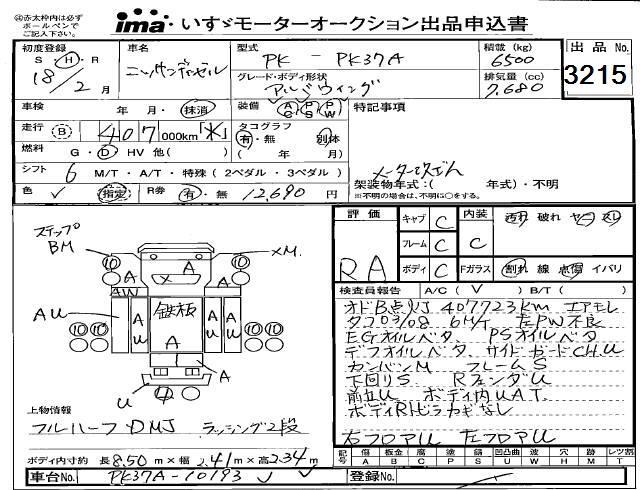 ㊟赤太枠内は必ず
ボールペンで
ご記入下さい。
ima・いすゞモーターオークション出品申込書
初度登録
S・H・R
18/2月
車名
ニッサンディーゼル
型式
PK - PK37A
グレード・ボディ形状
アルミウイング
積載 (kg)
6500
排気量 (cc)
7,680
出品 No.
3215
車検 年・月・抹消
装備 AC PS PW
特記事項
走行 B 407 000km「メ」
タコグラフ
有・無 別体
( 年 月)
燃料 G・D・HV 他( )
メーター改ざん
シフト 6 M/T・A/T・特殊 (2ペダル・3ペダル)
架装物年式:( 年式)・不明
※不明の場合は、不明に○をする。
色 ✓ 指定 R券 有・無 12,690 円
評価 キャブ C 内装 汚れ 破れ ヤニ スレ
フレーム C C
RA ボディ C Fガラス 割れ 線 点傷 イバリ
検査員報告 A/C ( ✓ ) B/T ( )
オドB点灯 407723km エアモレ
タコ03/08 6M/T 左PW不良
EGオイルベタ PSオイルベタ
デフオイルベタ サイドガードCH.U
カンバンM フレームS
下回りS RフェンダU
前立U ボディ内UAT.
ボディRHヒラカギなし
右フロアU 左フロアU
ステップ
BM
XM.
⑩ ⑩
A A X A
AW
AU
A U 鉄板 A U
A
⑩ ⑩ ⑩ ⑩
A
U
上物情報
フルハーフ DMJ ラッシング2段
ボディ内寸約 長8.50m×幅2.41m×高2.34m
記号 傷 板金 腐 塗 錆 凹凸曲 可 穴 跡 レツ割
A B C P S U W H M T
車台No. PK37A-10193 ✓ ✓
登録No.